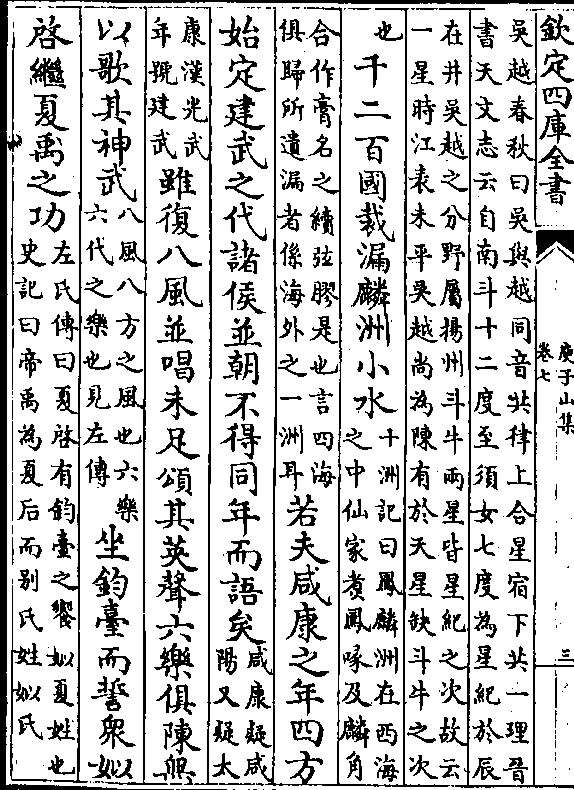 欽定四庫全書
庾子山集
卷七
三
吳越春秋曰吳與越同音共律上合星宿下共一理晉
書天文志云自南斗十二度至須女七度為星紀於辰
在井吳越之分野屬揚州斗牛兩星皆星紀之次故云
一星時江表未平吳越尚為陳有於天星缺斗牛之次
也千二百國裁漏麟洲小水十洲記曰鳳麟洲在西海之中仙家煑鳳喙及麟角
合作膏名之續弦膠是也言四海俱歸所遺漏者係海外之一洲耳若夫咸康之年四方
始定建武之代諸侯並朝不得同年而語矣咸康疑咸陽又疑太
康漢光武年號建武雖復八風並唱未足頌其英聲六樂俱陳無
以歌其神武八風八方之風也六樂六代之樂也見左傳坐鈞臺而誓衆姒
啓繼夏禹之功左氏傳曰夏啓有鈞臺之饗姒夏姓也史記曰帝禹為夏后而別氏姓姒氏